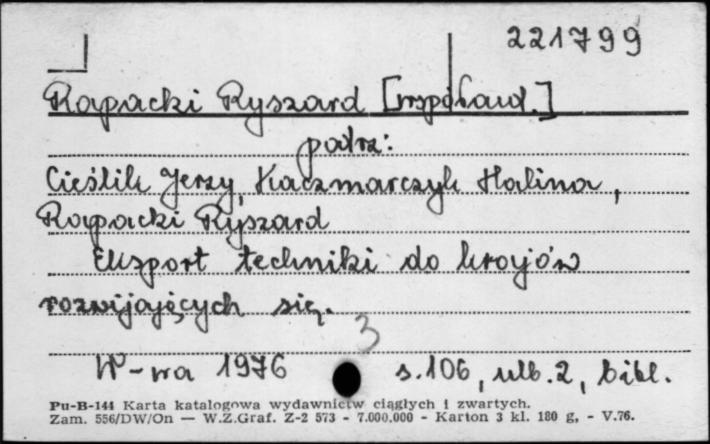 221799
Rapacki Ryszard [współaut.]
patrz:
Cieślik Jerzy, Kaczmarczyk Halina,
Rapacki Ryszard
Eksport techniki do krajów
rozwijających się.
3
W-wa 1976 s.106, nlb.2, bibl.
Pu-B-144 Karta katalogowa wydawnictw ciągłych i zwartych.
Zam. 556/DW/On — W.Z.Graf. Z-2 573 - 7.000.000 - Karton 3 kl. 180 g, - V.76.